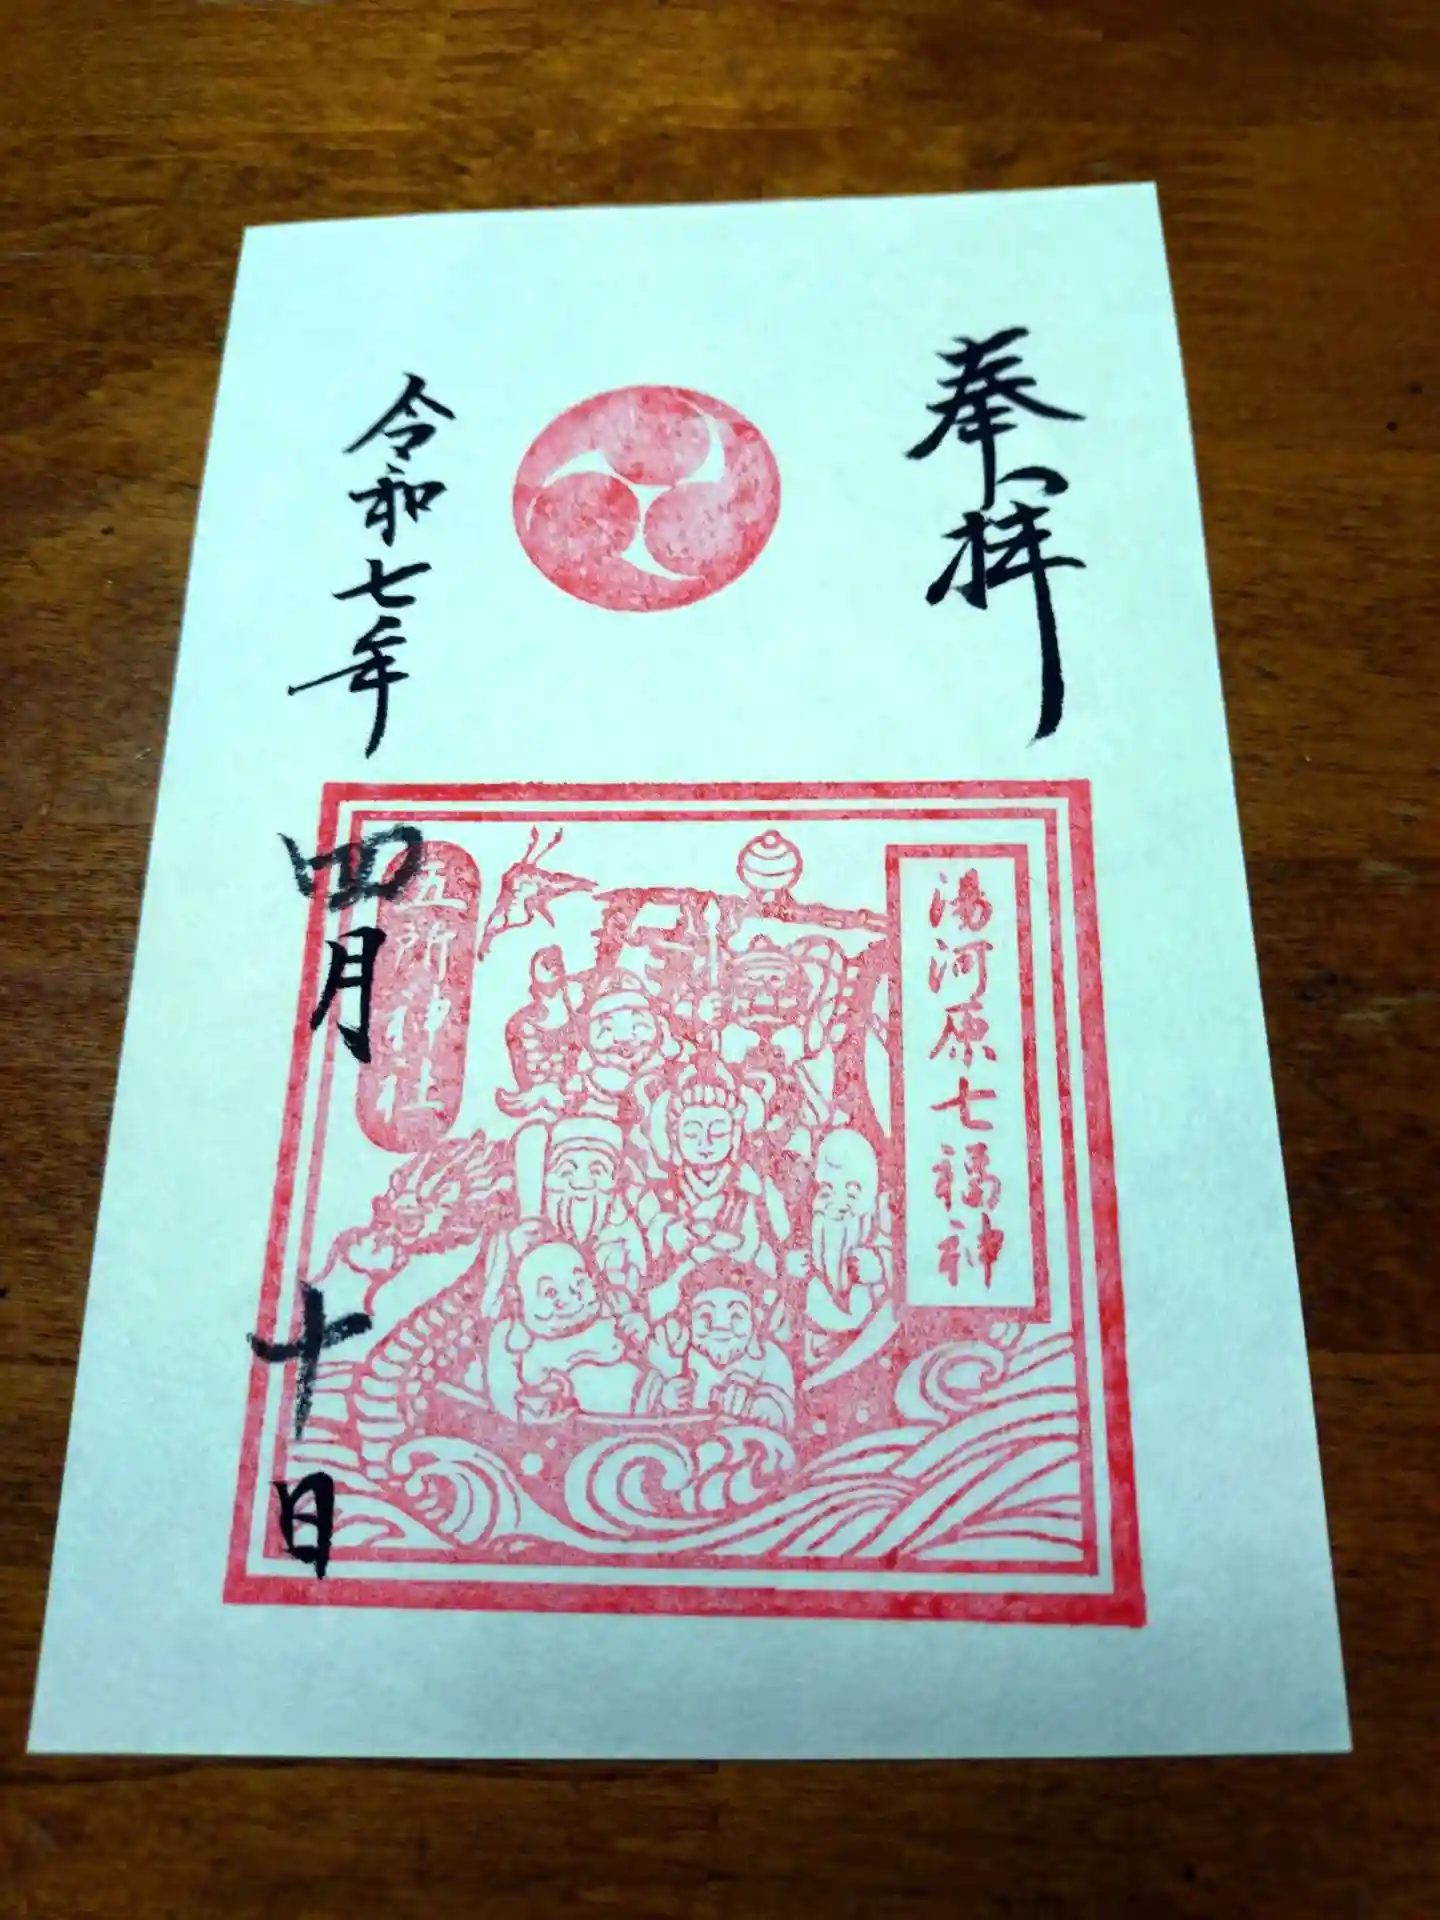 奉拝
湯河原七福神
五所神社
令和七年四月十日